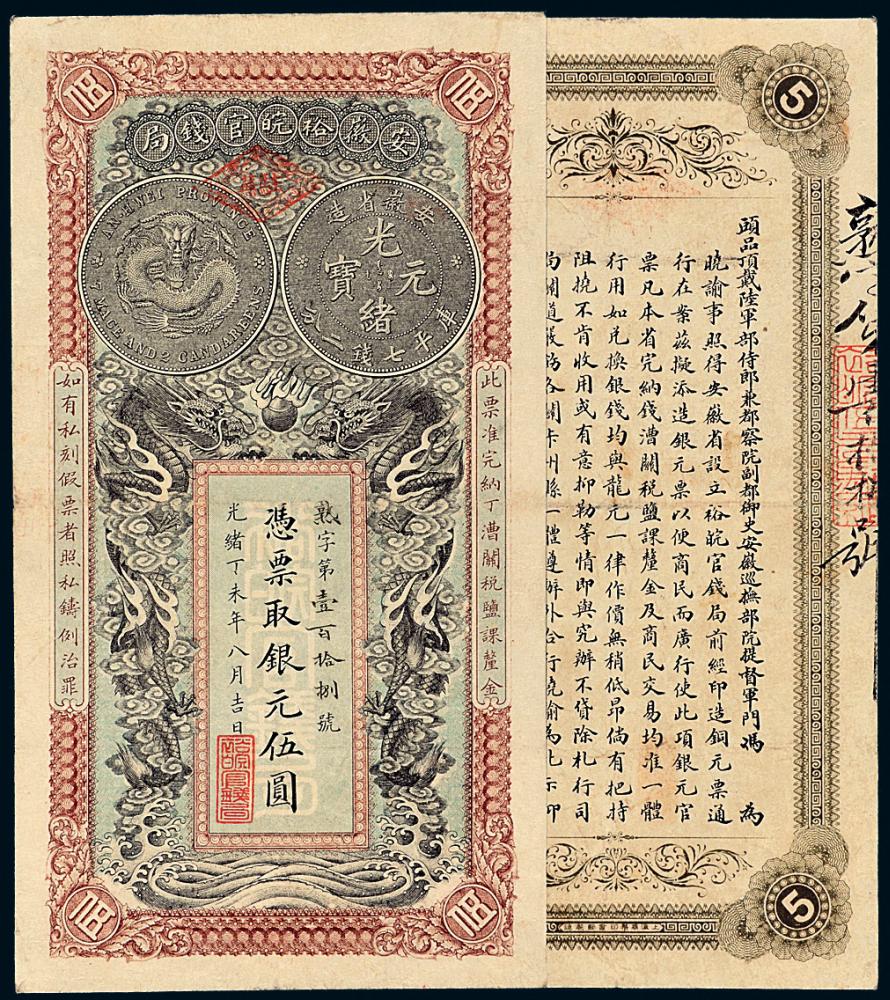 伍
伍
安徽裕皖官錢局
AN-HWEI PROVINCE
7 MACE AND 2 CANDAREENS
安徽省造
光緒元寶
庫平七錢二分
此票准完納丁漕關税鹽課釐金
如有私刻假票者照私鑄例治罪
熟字第壹百拾捌號
憑票取銀元伍圓
光緒丁未年八月吉日
伍
伍
5
頭品頂戴陸軍部侍郎兼都察院副都御史安徽巡撫部院提督軍門馮 為
曉諭事照得安徽省設立裕皖官錢局前經印造銅元票通
行在案茲擬添造銀元票以便商民而廣行使此項銀元官
票凡本省完納錢漕關税鹽課釐金及商民交易均准一體
行用如兑換銀錢均與龍元一律作價無稍低昂倘有把持
阻撓不肯收用或有意抑勒等情即與究辦不貸除札行司
5